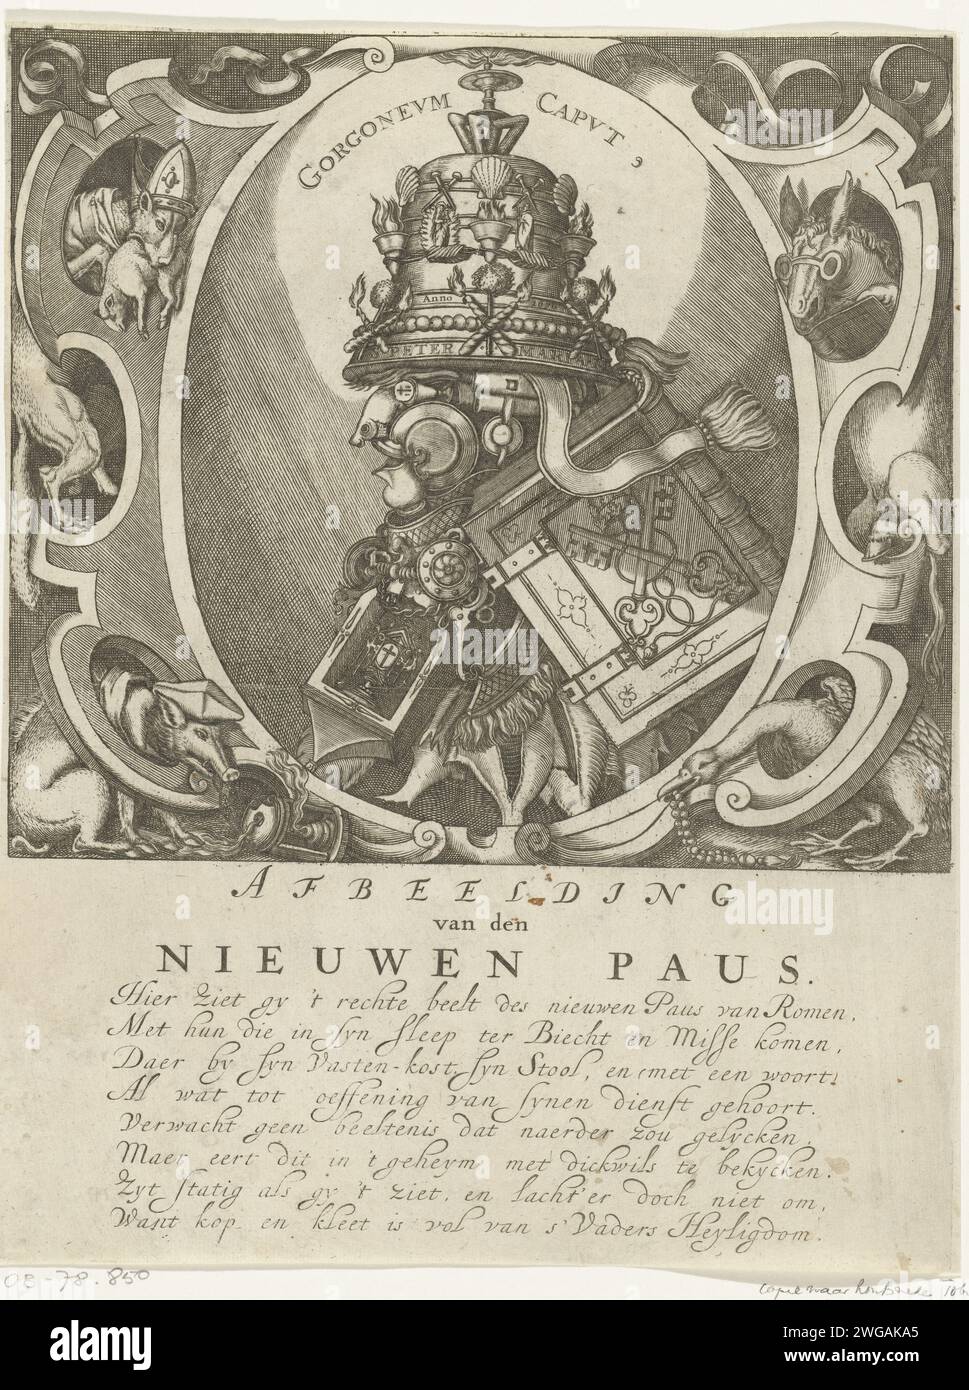 GORGONEVM CAPVT
Anno
PETER MARIA
AFBEELDING
van den
NIEUWEN PAUS.
Hier ziet gy 't rechte beelt des nieuwen Paus van Romen,
Met hun die in syn sleep ter Biecht en Misse komen,
Daer by syn Vasten-kost, syn Stool, en met een woort,
Al wat tot oeffening van synen dienst gehoort.
Verwacht geen beeltenis dat naerder zou gelycken,
Maer eert dit in 't geheym met dickwils te bekycken.
Zyt statig als gy 't ziet, en lacht'er doch niet om,
Want kop en kleet is vol van 's Vaders Heyligdom.
OB-78.850
alamy
Image ID: 2WGAKA5
www.alamy.com